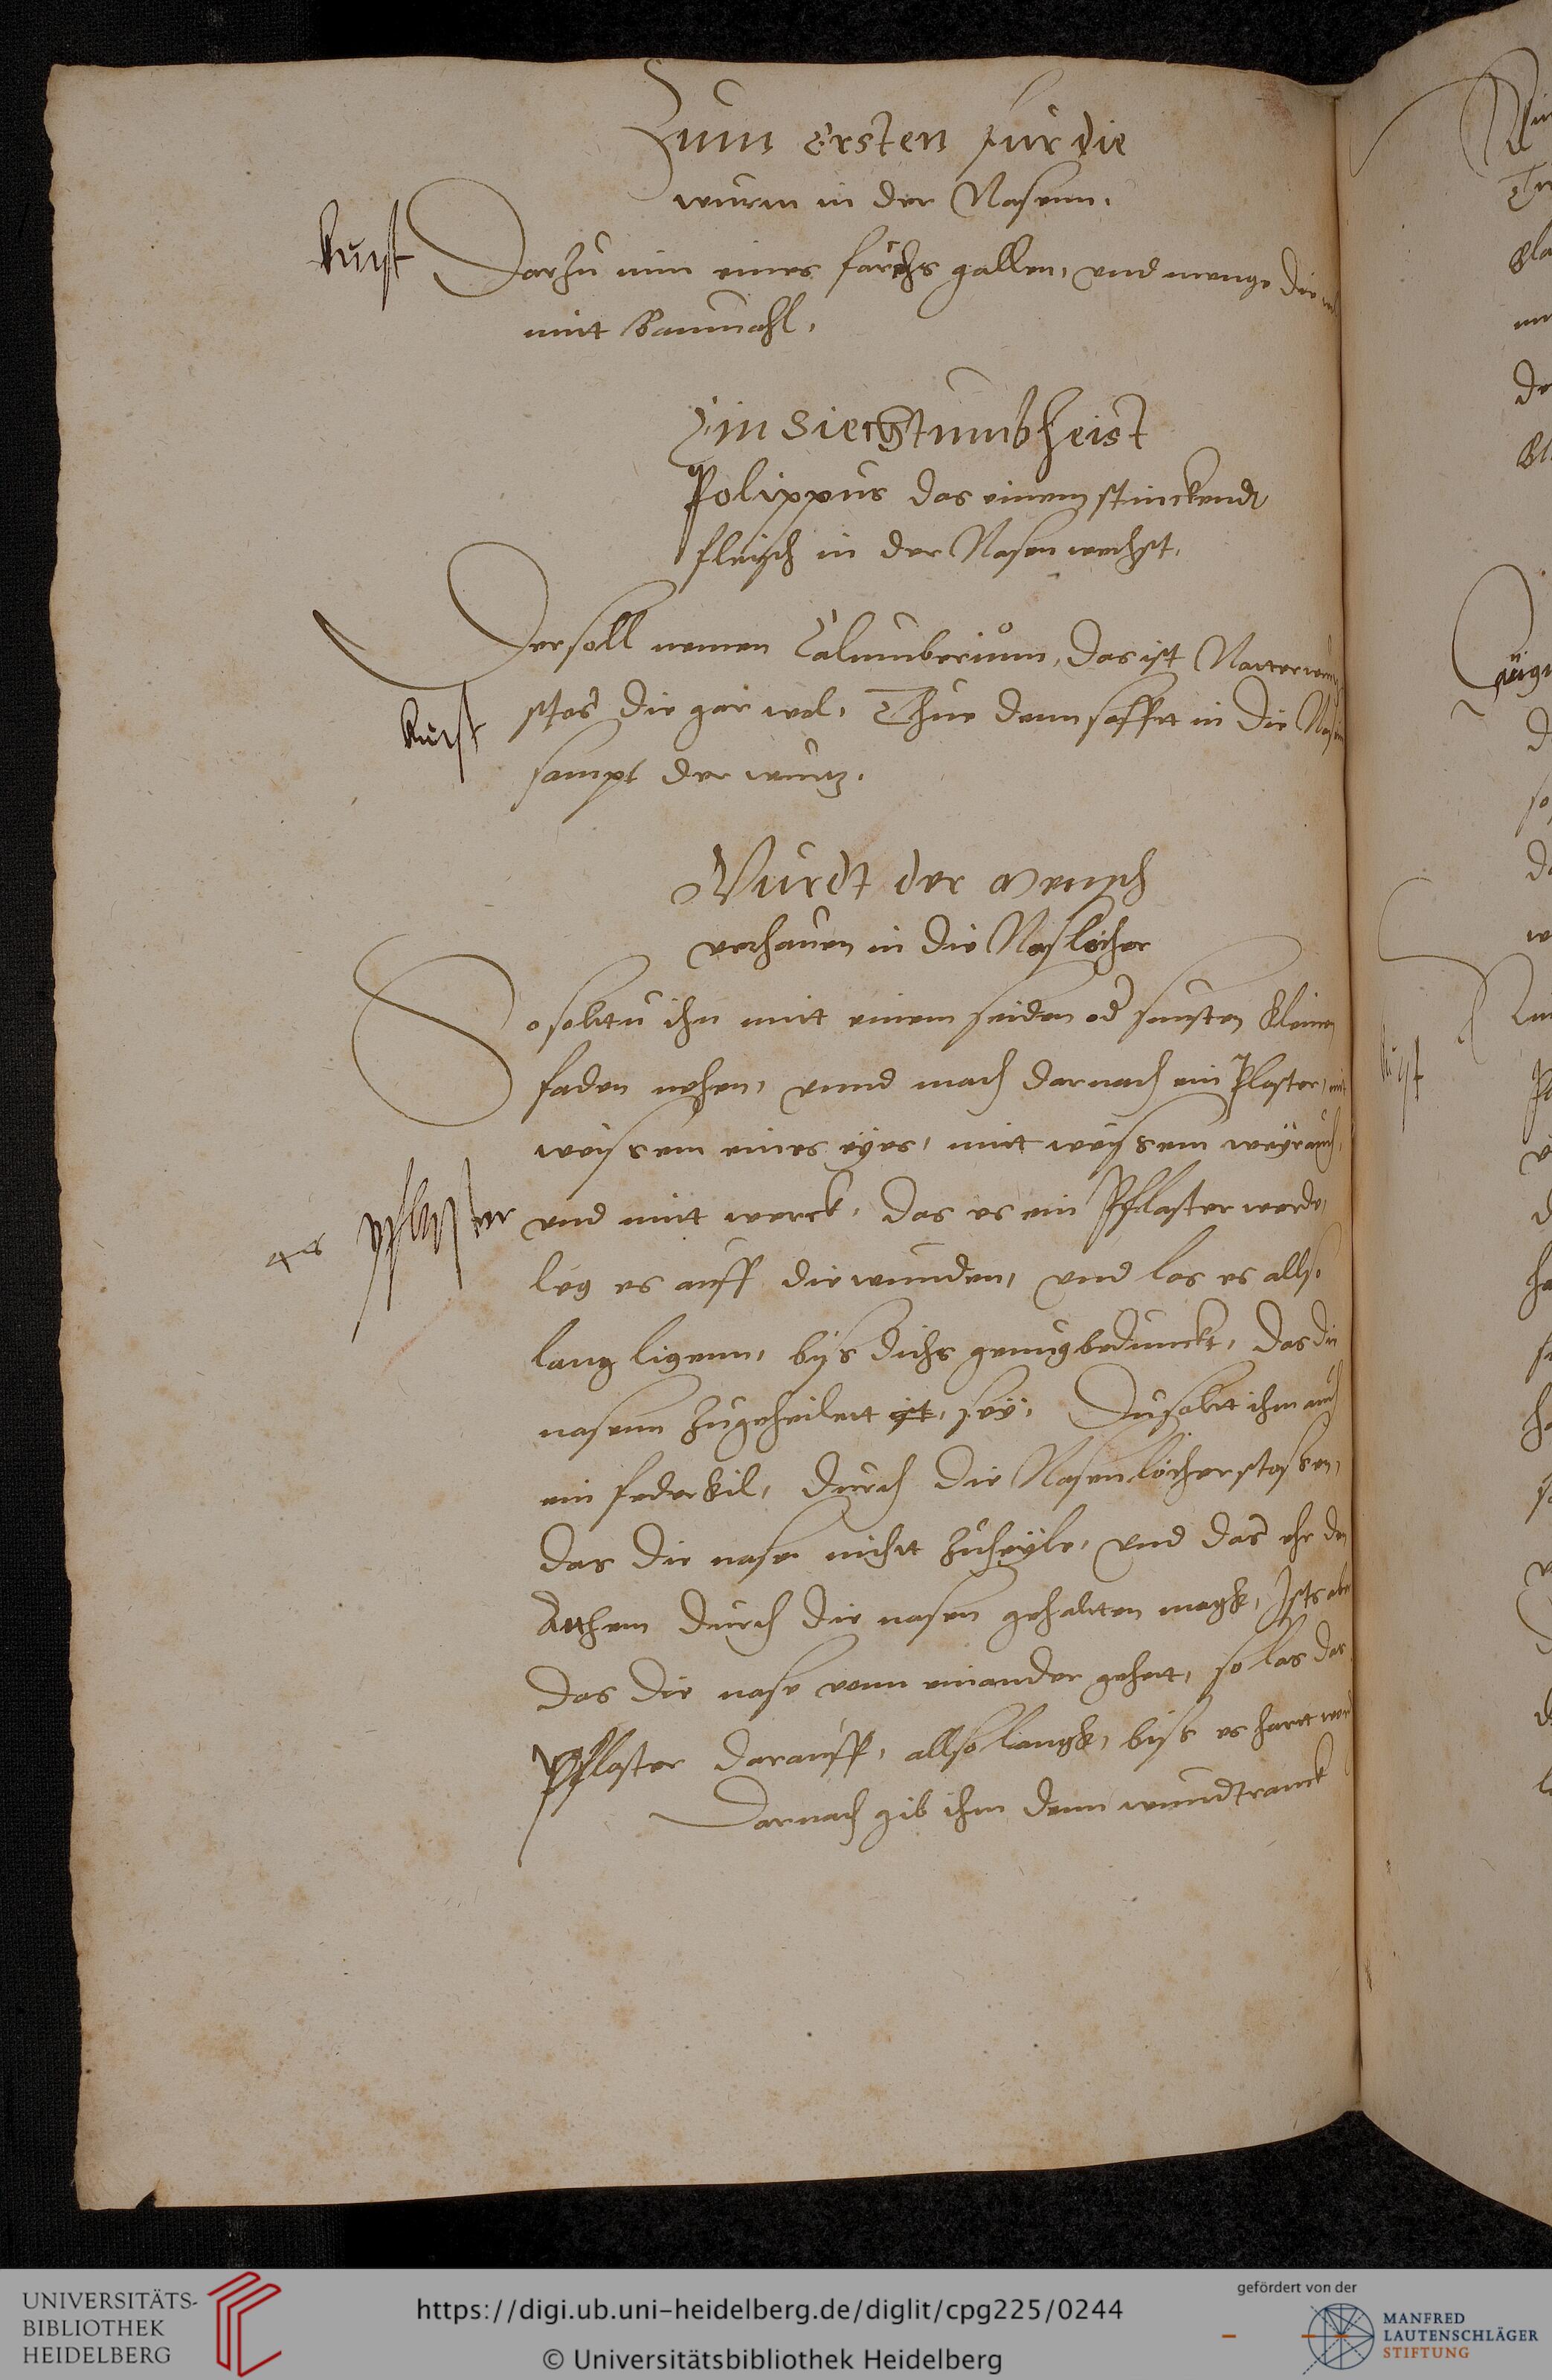 Zum Ersten fur die
wurm in der Nasenn.
kunst
Darzu nim eines farchs gallen, und menge die
mitt Baumohl.
Ein Siechtumb heist
Polippus das einem stinckendt
fleisch in der Nasen wechst.
Der soll nemen Columberium, das ist Natterwurtz
kunst
stos die gar wol, Thue denn safftt in die Nasen
sampt der wurtz.
Wurdt der Mensch
verhauen in die Naslöcher
So soltu ihn mitt einem seiden od sunsten kleinen
faden nehen, unnd mach darnach ein Plaster, mit
weyssem eines eyes, mitt weyssem weyrauch,
pflaster
und mitt werck, das es ein Pflaster werde,
leg es auff die wunden, und las es allso
lang ligenn, byss dichs genug bedunckt, das die
nasenn zugeheilett ist, sey, Du soltt ihm auch
ein federkil, durch die Nasenlöcher stossen,
das die nase nichtt zuheyle, und das ehr den
Atthem durch die nasen gehaltten magk, Ists aber
das die nase vonn einander gehett, so las das
Pflaster darauff, allso langk, biss es hartt werd
Darnach gib ihm denn wundtranck
UNIVERSITÄTS-
BIBLIOTHEK
HEIDELBERG
https://digi.ub.uni-heidelberg.de/diglit/cpg225/0244
© Universitätsbibliothek Heidelberg
gefördert von der
MANFRED
LAUTENSCHLÄGER
STIFTUNG